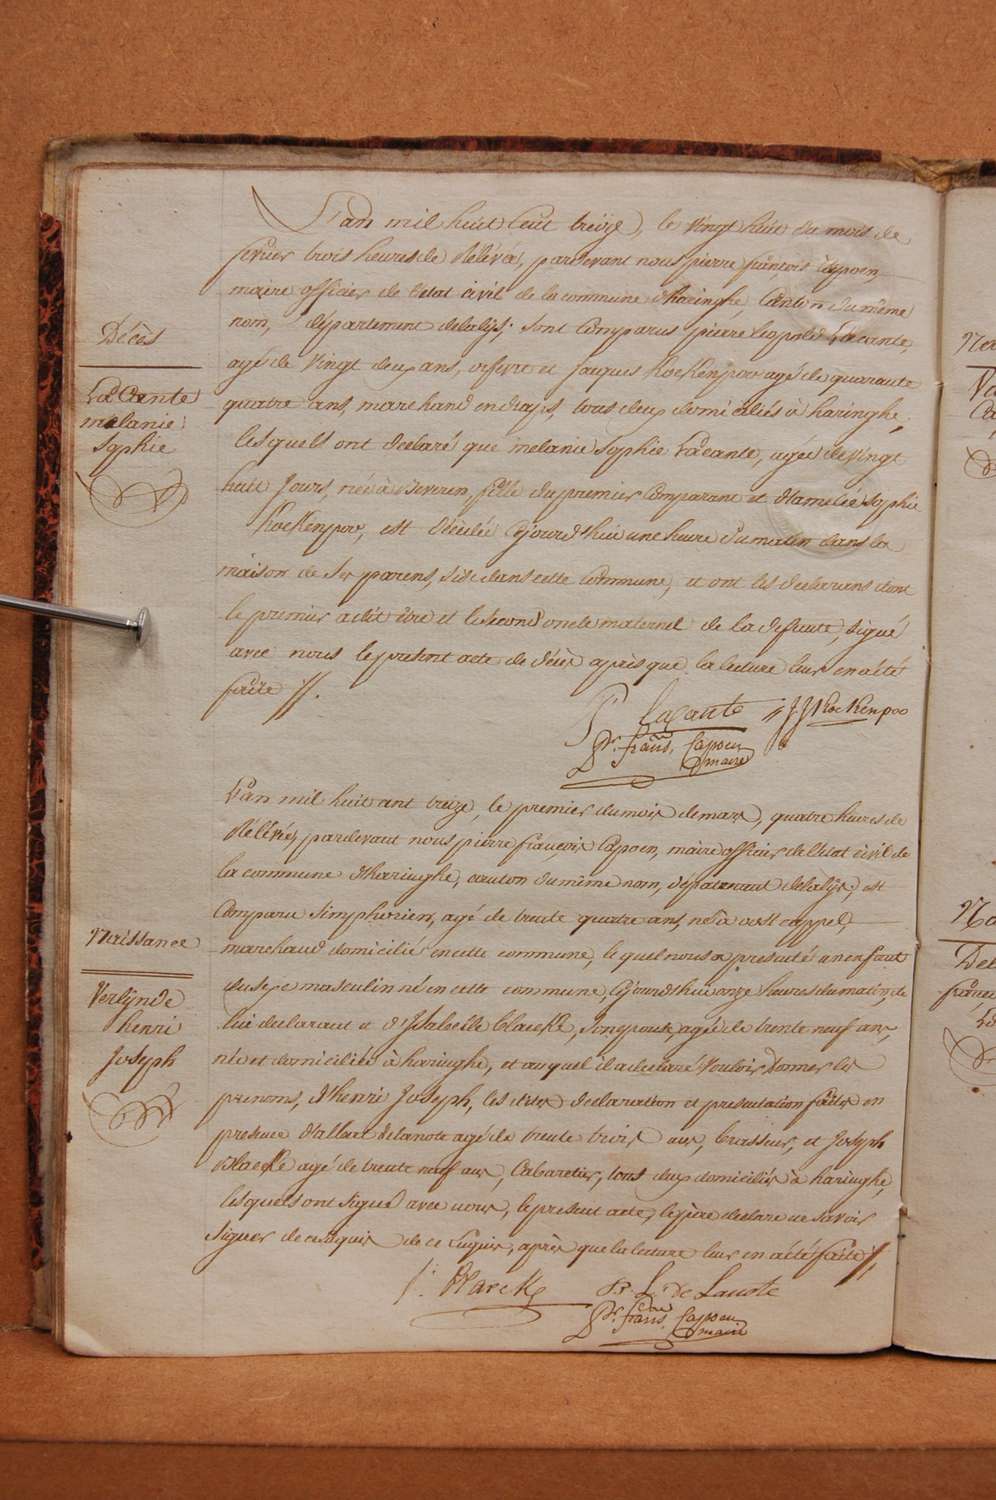 L'an mil huit cent treize, le vingt huit du mois de
fevrier trois heures de Relévé, pardevant nous pierre françois Capoen,
maire officier de l'etat civil de la commune d'haringhe, Canton du même
nom, département de la lijs; sont Comparus pierre Leopold LaCante,
agé de vingt deux ans, orfevre et jacques Kockenpoo agé de quarante
quatre ans, marchand en draps, tous deux domiciliés à haringhe,
lesquels ont declaré que melanie Sophie LaCante, agée de vingt
huit Jours, née à Beveren, fille du premier Comparant et d'amelie Sophie
Kockenpoo, est décédée Cejourd'hui une heure du matin dans la
maison de ses parens, sise dans cette Commune, et ont les declarans dont
le premier a dit être et le second oncle maternel de la defunte, signé
avec nous le present acte de décès après que la lecture leur en a été
faite //.
Décès
LaCante
melanie
Sophie
P LaCante J J Kockenpoo
Pre. frans. Capoen
maire
L'an mil huit cent treize, le premier du mois de mars, quatre heures de
Rélévée, pardevant nous pierre françois Capoen, maire officier de l'etat civil de
la commune d'haringhe, canton du même nom, département de la lijs; est
Comparu Simphorien, agé de trente quatre ans, né à oost cappel,
marchand domicilié en cette commune, le quel nous a presenté un enfant
du sexe masculin né en cette commune, Cejourd'hui onze heures du matin de
lui declarant et d'Isabelle Blaecke, son epouse, agée de trente neuf ans,
née et domiciliée à haringhe, et au quel il a declaré vouloir donner les
prenoms, d'henri Joseph, les dites declaration et presentation faites en
presence d'albert delanote agé de trente trois ans, brasseur, et Joseph
Blaecke agé de trente neuf ans, Cabaretier, tous deux domiciliés à haringhe,
lesquels ont signé avec nous, le present acte, le père declare ne savoir
signer de ce requis de ce Enquis, après que la lecture leur en a été faite //.
Naissance
Verlynde
henri
Joseph
J. Blaecke De Lanote
Pre. frans. Capoen
maire